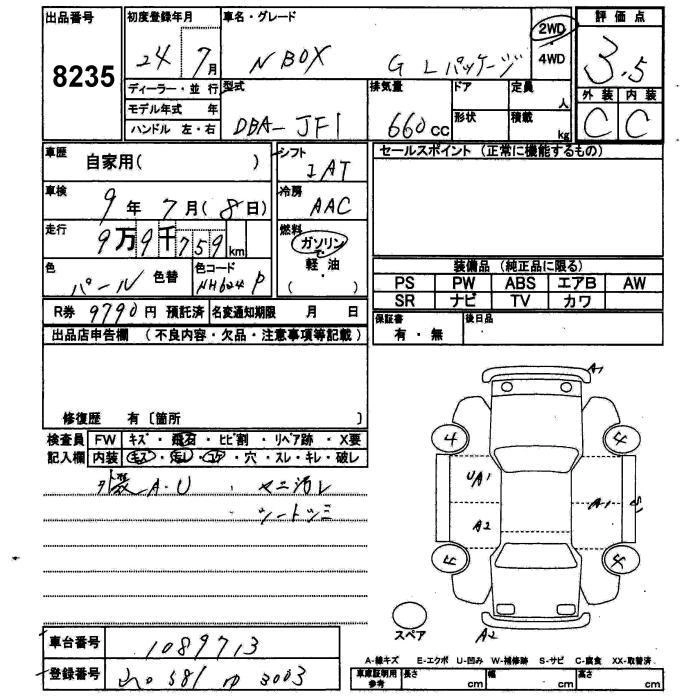 出品番号
8235
初度登録年月
24 7月
車名・グレード
N BOX G Lパッケージ
2WD
・
4WD
評価点
3.5
外装 内装
C C
ディーラー・並行
モデル年式 年
ハンドル 左・右
型式
DBA-JF1
排気量
660cc
ドア
形状
定員
人
積載
kg
車歴
自家用( )
シフト
IAT
車検
9年 7月(8日)
冷房
AAC
走行
9万9千759km
燃料
ガソリン
・
軽・油
( )
色
パール
色替
色コード
NH624P
R券 9790円 預託済
名変通知期限 月 日
セールスポイント (正常に機能するもの)
装備品 (純正品に限る)
PS PW ABS エアB AW
SR ナビ TV カワ
保証書
有・無
後日品
出品店申告欄 (不良内容・欠品・注意事項等記載)
修復歴 有〔箇所 〕
検査員
記入欄
FW キズ・飛石・ヒビ割・リペア跡・X要
内装 キズ・汚レ・コゲ・穴・スレ・キレ・破レ
外装A・U
シートシミ
A1
4 4
UA1
A2
A1
4 4
A2
スペア
A-線キズ E-エクボ U-凹み W-補修跡 S-サビ C-腐食 XX-取替済
車台番号
1089713
登録番号
581 3003
車庫証明用
参考
長さ cm
幅 cm
高さ cm